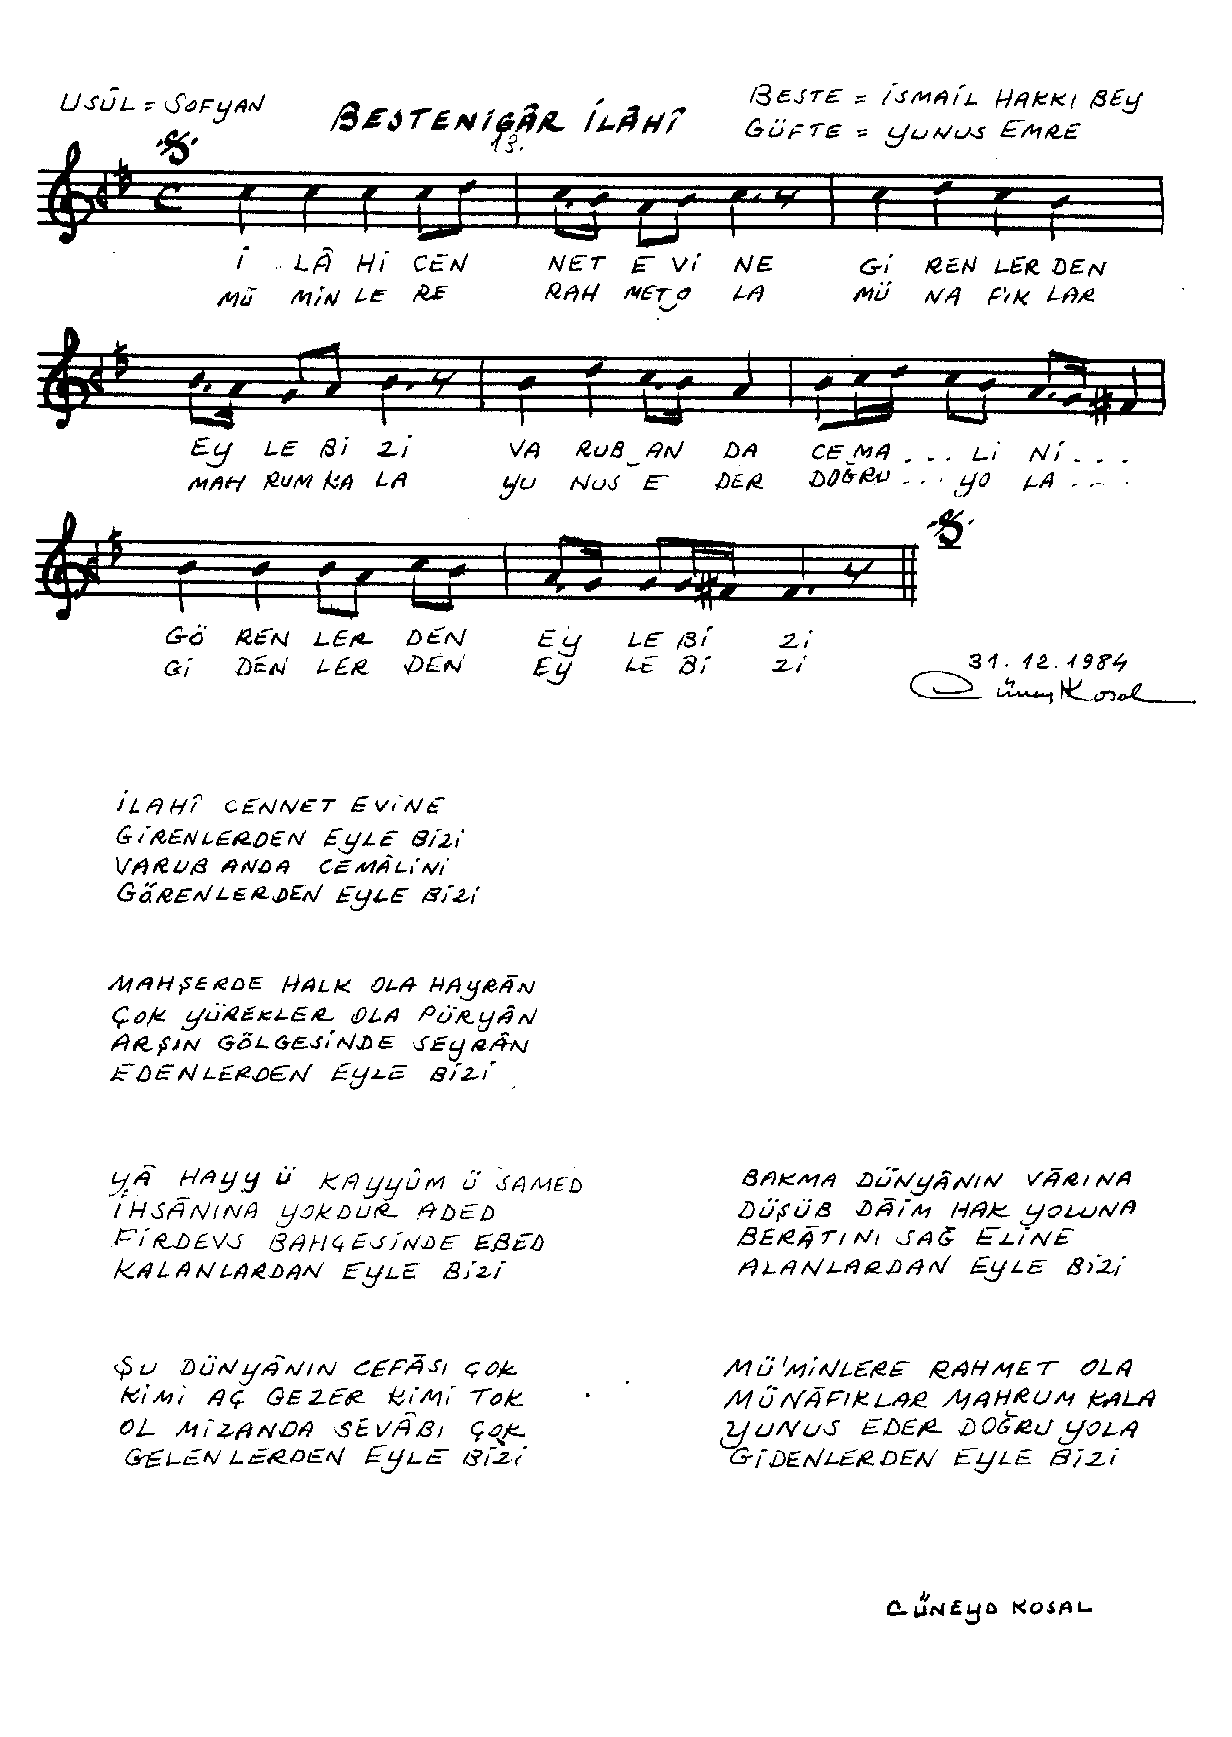 USÛL = SOFYAN
BESTENİGÂR İLÂHÎ
13.
BESTE = İSMAİL HAKKI BEY
GÜFTE = YUNUS EMRE
İ LÂ Hİ CEN NET E Vİ NE Gİ REN LER DEN
MÜ MİN LE RE RAH MET O LA MÜ NA FIK LAR
EY LE Bİ Zİ VA RUB AN DA CE MA ... Lİ Nİ ...
MAH RUM KA LA YU NUS E DER DOĞRU ... YO LA ...
GÖ REN LER DEN EY LE Bİ Zİ
Gİ DEN LER DEN EY LE Bİ Zİ
31.12.1984
Cüneyd Kosal
İLAHÎ CENNET EVİNE
GİRENLERDEN EYLE BİZİ
VARUB ANDA CEMÂLİNİ
GÖRENLERDEN EYLE BİZİ
MAHŞERDE HALK OLA HAYRÂN
ÇOK YÜREKLER OLA PÜRYÂN
ARŞIN GÖLGESİNDE SEYRÂN
EDENLERDEN EYLE BİZİ
YÂ HAYY Ü KAYYÛM Ü SAMED
İHSÂNINA YOKDUR ADED
FİRDEVS BAHÇESİNDE EBED
KALANLARDAN EYLE BİZİ
ŞU DÜNYÂNIN CEFÂSI ÇOK
KİMİ AÇ GEZER KİMİ TOK
OL MİZANDA SEVÂBI ÇOK
GELENLERDEN EYLE BİZİ
BAKMA DÜNYÂNIN VÂRINA
DÜŞÜB DÂİM HAK YOLUNA
BERÂTINI SAĞ ELİNE
ALANLARDAN EYLE BİZİ
MÜ'MİNLERE RAHMET OLA
MÜNÂFIKLAR MAHRUM KALA
YUNUS EDER DOĞRU YOLA
GİDENLERDEN EYLE BİZİ
CÜNEYD KOSAL